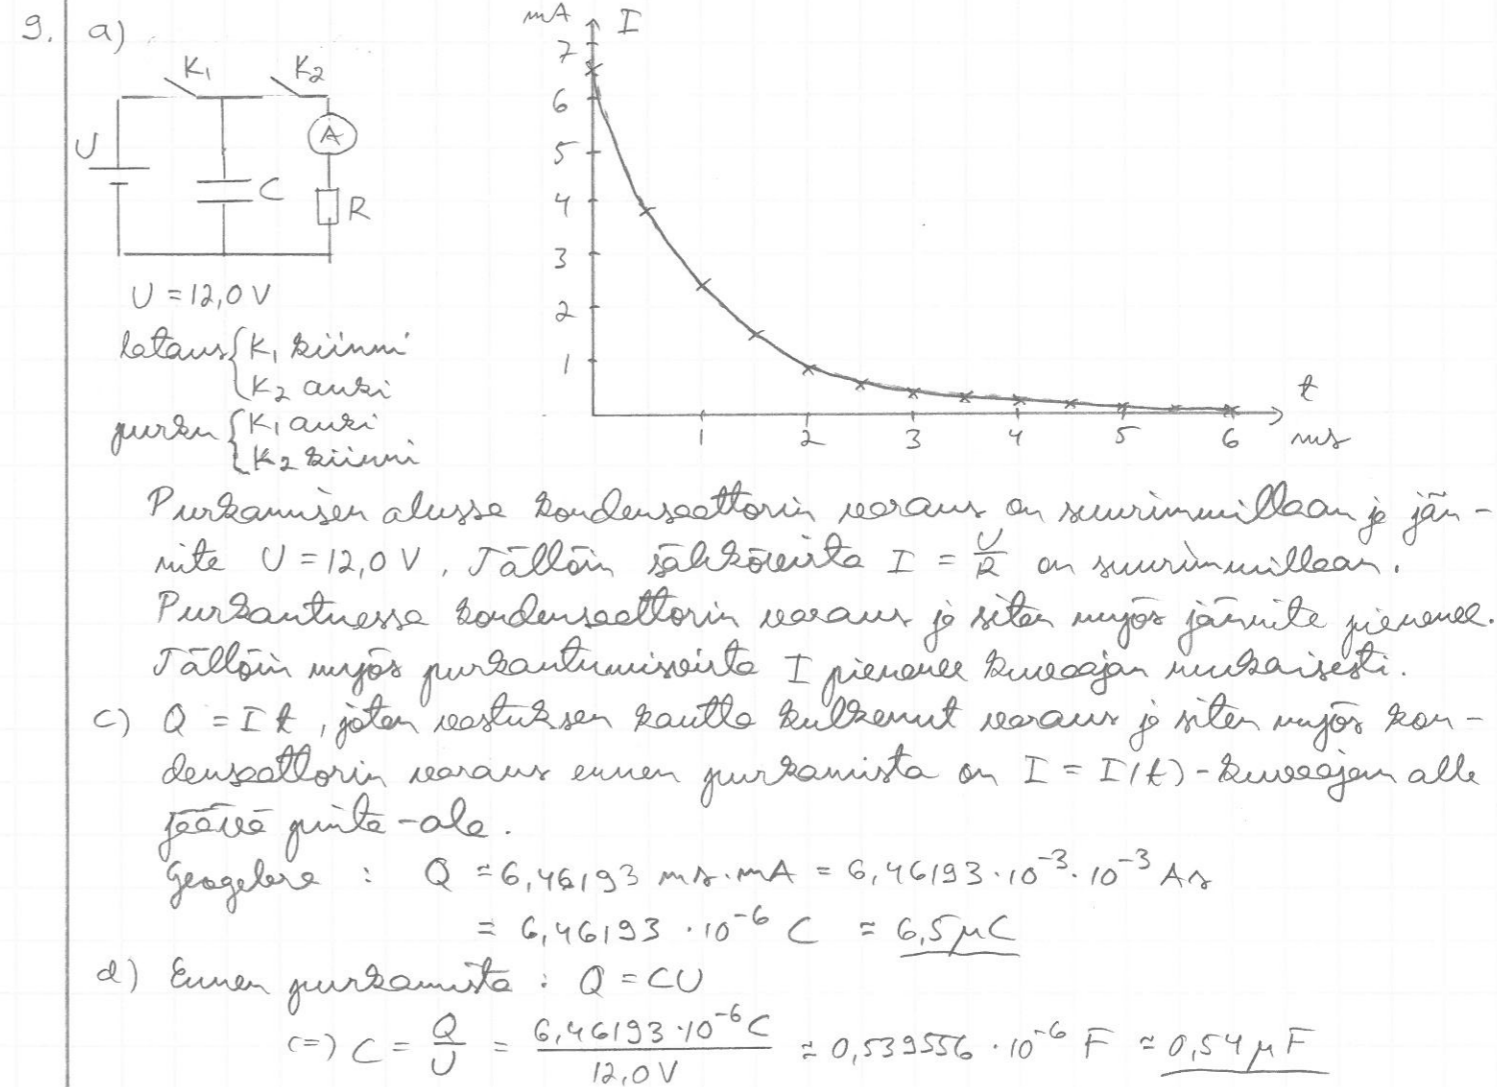 9. a)
K₁ K₂
U
A
C
R
U = 12,0 V
lataus { K₁ kiinni
K₂ auki
purku { K₁ auki
K₂ kiinni
mA I
7
6
5
4
3
2
1
t
1 2 3 4 5 6 ms
Purkamisen alussa kondensaattorin varaus on suurimmillaan ja jän-
nite U = 12,0 V. Tällöin sähkövirta I = U/R on suurimmillaan.
Purkautuessa kondensaattorin varaus ja siten myös jännite pienenee.
Tällöin myös purkautumisvirta I pienenee kuvaajan mukaisesti.
c) Q = I t, joten vastuksen kautta kulkenut varaus ja siten myös kon-
densaattorin varaus ennen purkamista on I = I(t)-kuvaajan alle
jäävä pinta-ala.
Geogebra : Q = 6,46193 ms·mA = 6,46193·10⁻³·10⁻³ As
= 6,46193 ·10⁻⁶ C ≈ 6,5 μC
d) Ennen purkamista : Q = CU
(=) C = Q/U = 6,46193·10⁻⁶ C / 12,0 V ≈ 0,539556 ·10⁻⁶ F ≈ 0,54 μF